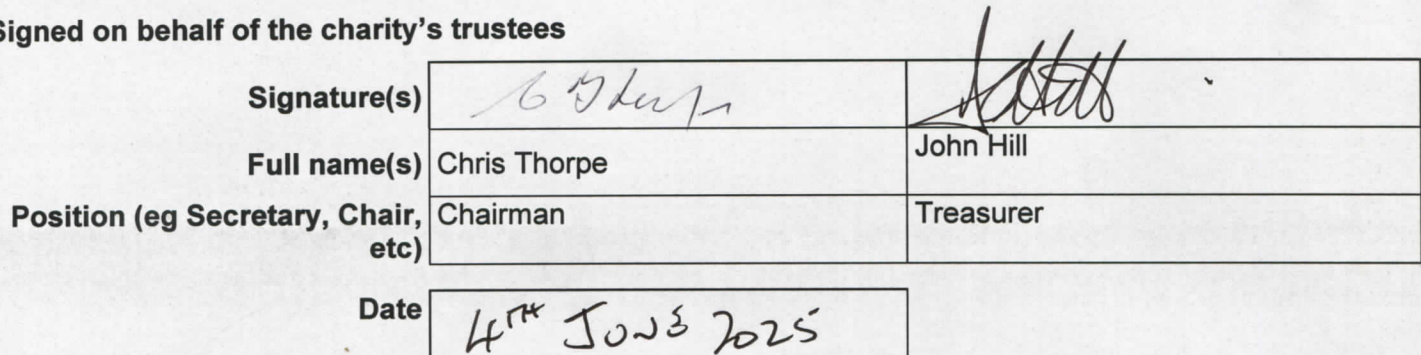 Signed on behalf of the charity's trustees
Signature(s)
Full name(s) Chris Thorpe John Hill
Position (eg Secretary, Chair, etc) Chairman Treasurer
Date 4TH JUNE 2025